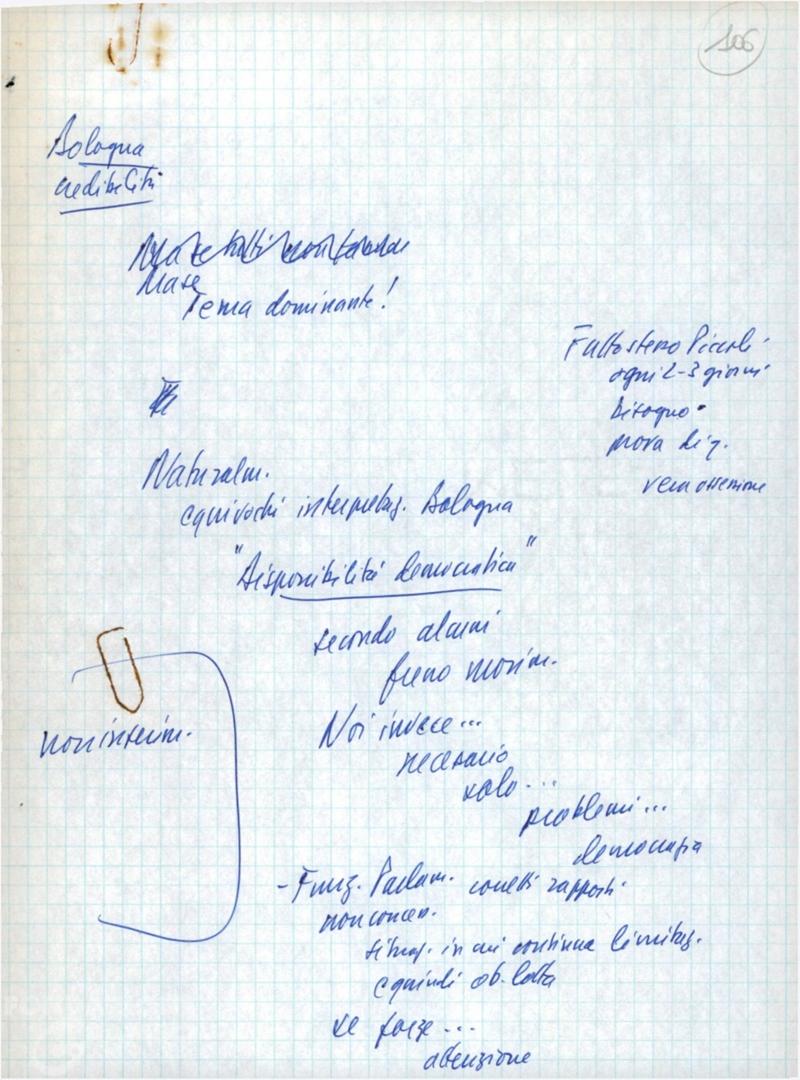 106
Bologna
credibilità
Ma se tutti
Ma se
Tema dominante!
Fatto stesso Piccoli
ogni 2-3 giorni
bisogno
prova di q.
Naturalm.
equivochi interpretaz. Bologna
"Disponibilità democratica"
secondo alcuni
freno movim.
non interim.
Noi invece...
necessario
solo...
problemi...
democrazia
- Funz. Parlam. corretti rapporti
non concer.
situaz. in cui continua limitaz.
e quindi ob. lotta
se forze...
attenzione